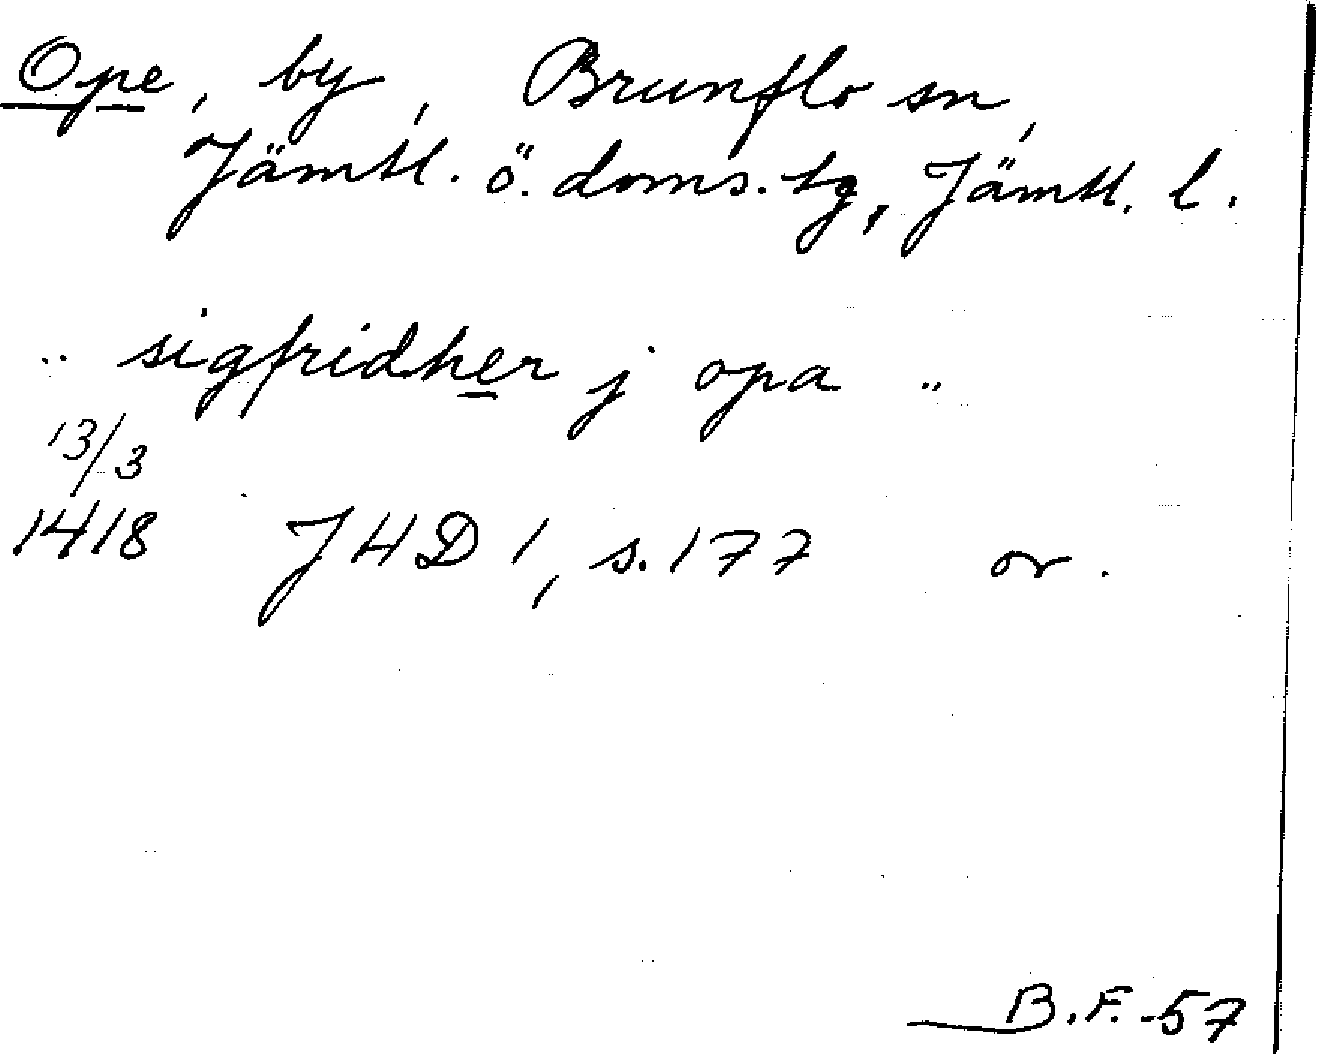 Ope, by, Brunflo sn,
Jämtl. ö. doms. tg, Jämtl. l.
.. sigfridher j opa ..
13/3
1418 JHD 1, s. 177 or.
B.F. -57